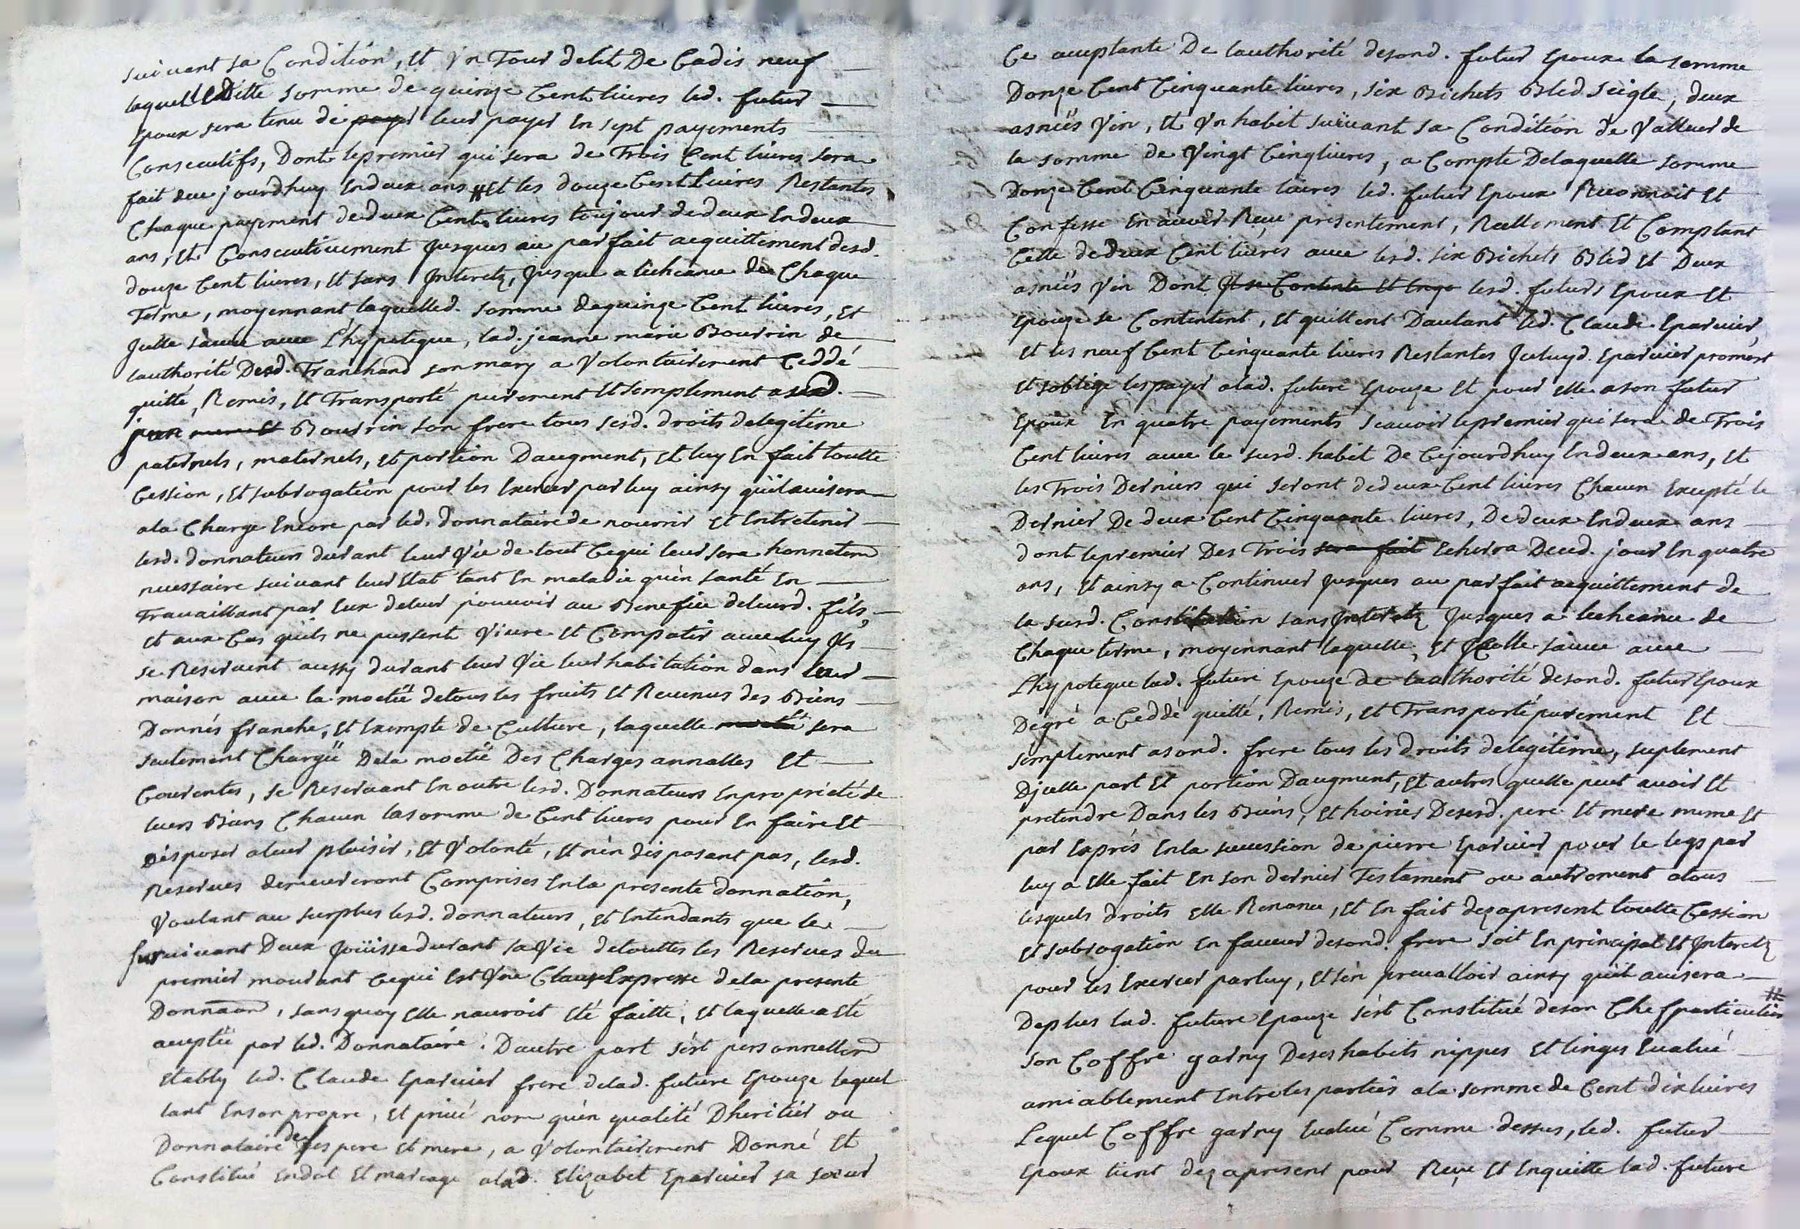 suivant sa Condition, Et Vn Tour delit De Cadis neuf
laquelle Ditte somme de quinze Cent livres led. futur
Epoux sera tenu de payer leur payer En sept payements
Consecutifs, Dont lepremier qui sera de Trois Cent livres sera
fait duu jourdhuy Endeux ans # Et les douze Cent Livres Restantes
Chaque payement dedeux Cents livres toujour dedeux Endeux
ans, Et Consecutivement Jusques au parfait acquittement desd.
douze Cent livres, Et sans Jnteretz, Jusque a lecheance de Chaque
Terme, moyennant laquelled. somme dequinze Cent livres, Et
Jcelle sauve avec Lhypoteque, lad. jeanne marie Bourrin de
lauthorité Desd. Tranchand son mary a Volontairement Ceddé
quitté, Remis, Et Transporté purement Et simplement asad.
jean Bourrin son frere tous sesd. droits delegitime
paternels, maternels, Et portion Daugment, Et luy En fait toutte
Cession, Et subrogation pour les Exercer par luy ainsy quil avisera
ala Charge Encore par led. donnataire de nourrir Et Entretenir
lesd. donnateurs durant leur Vie de tout Cequi leur sera honnetem
necessaire suivant leur Etat tant En maladie quen santé En
Travaillant par Eux deleur pouvoir au Benefice deleurd. fils,
Et aux Cas quils ne pussent Vivre Et Compatir avec luy Jls
se Reservent aussy durant leur Vie leur habitation dans leur
maison avec la moetié detous les fruits Et Revenus des Biens
Donnés franche, Et Exempte de Culture, laquelle sera
seulement Chargée Dela moetié Des Charges annalles Et
Courentes, se Reservant En outre lesd. Donnateurs Enproprieté de
leurs Biens Chacun la somme de Cent livres pour En faire Et
disposer a leur plaisir, Et Volonté, Et nen disposant pas, lesd.
Reserves demeureront Comprises Enla presente donnation,
Voulant au surplus lesd. donnateurs, Et Entendants que le
survivant Deux Joüisse durant sa Vie detouttes les Reserves du
premier mourant Cequi Est Vne Clause Expresse dela presente
Donnaon, sans quoy Elle nauroit Eté faitte, Et laquelle a Eté
acceptée par led. Donnataire. Dautre part sest personnellem
Etably led. Claude Eparvier frere delad. future Epouze lequel
tant Enson propre, Et privé nom quen qualité Dheritier ou
Donnataire de ses pere Et mere, a Volontairement Donné Et
Constitué Endot Et mariage alad. Elizabet Eparvier sa soeur
Ce acceptante De lauthorité desond. futur Epoux la somme
Donze Cent Cinquante livres, six Bichets Bled seigle, deux
asnées Vin, Et Vn habit suivant sa Condition de Valleur de
la somme de Vingt Cinq livres, a Compte Delaquelle somme
Donze Cent Cinquante livres led. futur Epoux Reconnoit Et
Confesse En avoir Reçu presentement, Reellement Et Comptant
Celle dedeux Cent livres avec lesd. six Bichets Bled Et Deux
asnées Vin Dont Jl se Contente Et lesd. futurs Epoux Et
Epouze se Contentent, Et quittent Dautant led. Claude Eparvier,
Et les neuf Cent Cinquante livres Restantes Jceluyd. Eparvier promet
Et soblige les payer alad. future Epouze Et pour Elle ason futur
Epoux En quatre payements Scavoir lepremier qui sera de Trois
Cent livres avec le susd. habit De Cejourdhuy Endeux ans, Et
les Trois Derniers qui seront dedeux Cent livres Chacun Excepté le
Dernier De deux Cent Cinquante livres, De deux Endeux ans
dont lepremier Des Trois sera fait Echerra Ducd. jour En quatre
ans, Et ainsy a Continuer Jusques au parfait acquittement de
la susd. Constitution sans Jnteretz Jusques a lecheance de
Chaque terme, moyennant laquelle, Et Jcelle sauve avec
Lhypoteque lad. future Epouze de lauthorité desond. futur Epoux
Degré a Ceddé quitté, Remis, Et Transporté purement Et
simplement asond. frere tous les droits delegitime, suplement
Djcelle part Et portion Daugment, Et autres quelle peut avoir Et
pretendre Dans les Biens, Et hoiries Desesd. pere Et mere meme Et
par Exprés Enla succession de pierre Eparvier pour le legs par
luy a Elle fait En son dernier Testament ou autrement atous
lesquels droits Elle Renonce, Et En fait dezapresent toutte Cession
Et subrogation En faveur desond. frere soit En principal Et Jnteretz
pour les Exercer par luy, Et sen prevalloir ainsy quil avisera
Deplus lad. future Epouze sest Constitué deson Chef particulier #
son Coffre garny Deses habits nippes Et linges Evalué
amiablement Entre les parties ala somme de Cent dix livres
Lequel Coffre garny Evalué Comme dessus, led. futur
Epoux tient dezapresent pour Reçu Et Enquitte lad. future